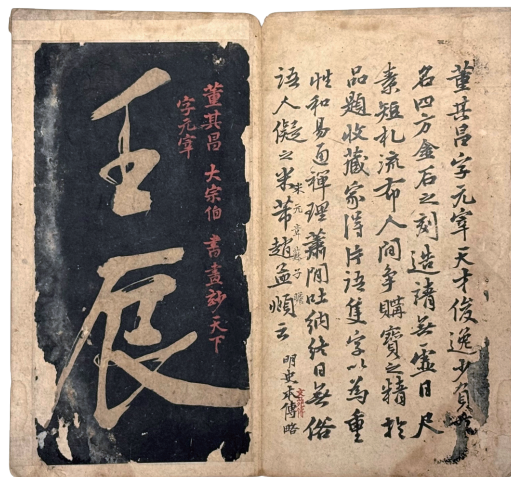 董其昌字元宰天才俊逸少負
名四方金石之刻造請無虛日尺
素短札流布人間爭購寶之精於
品題收藏家得片語隻字以為重
性和易通禪理蕭閒吐納終日無俗
語人儗之米芾趙孟頫云
明史本傳略
董其昌 大宗伯 書畫妙天下
字元宰
王辰